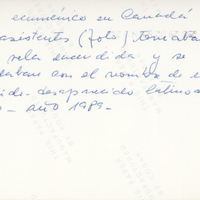 ecuménico en Canadá
asistentes (foto) tomaba
vela encendida y se
daban con el nombre de u
ido-desaparecido latinoa
- año 1989.-